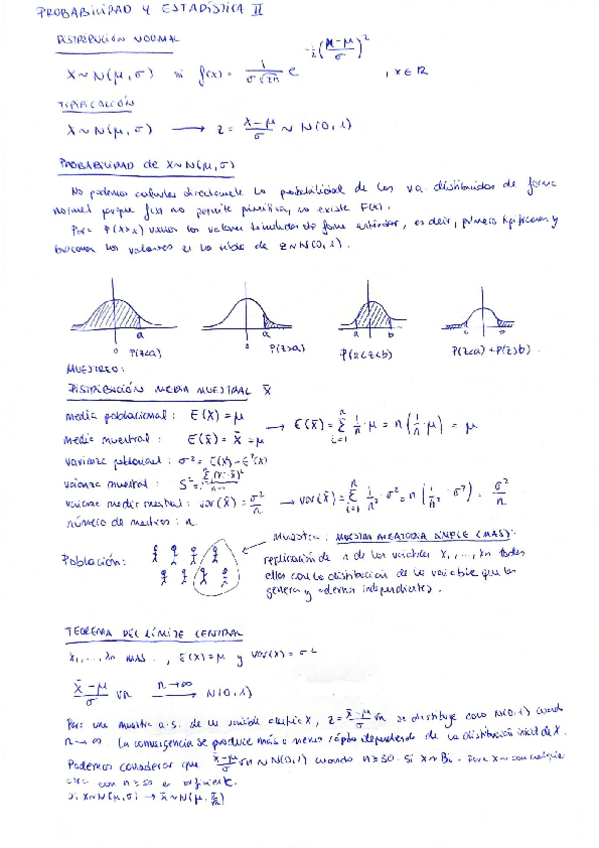 PROBABILIDAD Y ESTADÍSTICA II
DISTRIBUCIÓN NORMAL
X ~ N(μ, σ) si f(x) = 1/(σ√2π) e^(-½((x-μ)/σ)²), x ∈ ℝ
TIPIFICACIÓN
X ~ N(μ, σ) → z = (x-μ)/σ ~ N(0, 1)
PROBABILIDAD de X ~ N(μ, σ)
No podemos calcular directamente la probabilidad de las v.a. distribuidas de forma
normal porque f(x) no permite primitiva, no existe F(x).
Para los valores de forma estándar, es decir, primero tipificamos y
buscamos los valores en la tabla de z ~ N(0, 1).
a
0 P(z<a)
a
0 P(z>a)
a b
P(a<z<b)
P(z<a) + P(z>b).
MUESTREO:
DISTRIBUCIÓN MEDIA MUESTRAL X̄
media poblacional: E(X) = μ → E(X̄) = Σ(i=1, n) 1/n · μ = n(1/n · μ) = μ
media muestral: E(X̄) = X̄ = μ
varianza poblacional: σ² = E(X²) - E²(X)
varianza muestral: S² =
varianza media muestral: var(X̄) = σ²/n → var(X̄) = Σ(i=1, n) 1/n² · σ² = n(1/n² · σ²) = σ²/n
número de muestras: n
Población:
Muestra: MUESTRA ALEATORIA SIMPLE (MAS):
replicación de n de las variables X₁, ..., Xn todas
ellas con la distribución de la variable que las
genera y además independientes.
TEOREMA DEL LÍMITE CENTRAL
X₁, ..., Xn MAS, E(X) = μ y var(X) = σ²
(X̄-μ)/σ √n n→∞ → N(0, 1)
Para una muestra a.s. de una variable X, z = (X̄-μ)/σ √n se distribuye como N(0, 1) cuando
n → ∞. La convergencia se produce más o menos rápido dependiendo de la distribución inicial de X.
Podemos considerar que (X̄-μ)/σ √n ~ N(0, 1) cuando n ≥ 50 si X ~ Bi. Para X ~ con cualquier
otra con n ≥ 30 es suficiente.
Si X ~ N(μ, σ) → X̄ ~ N(μ, σ/√n)